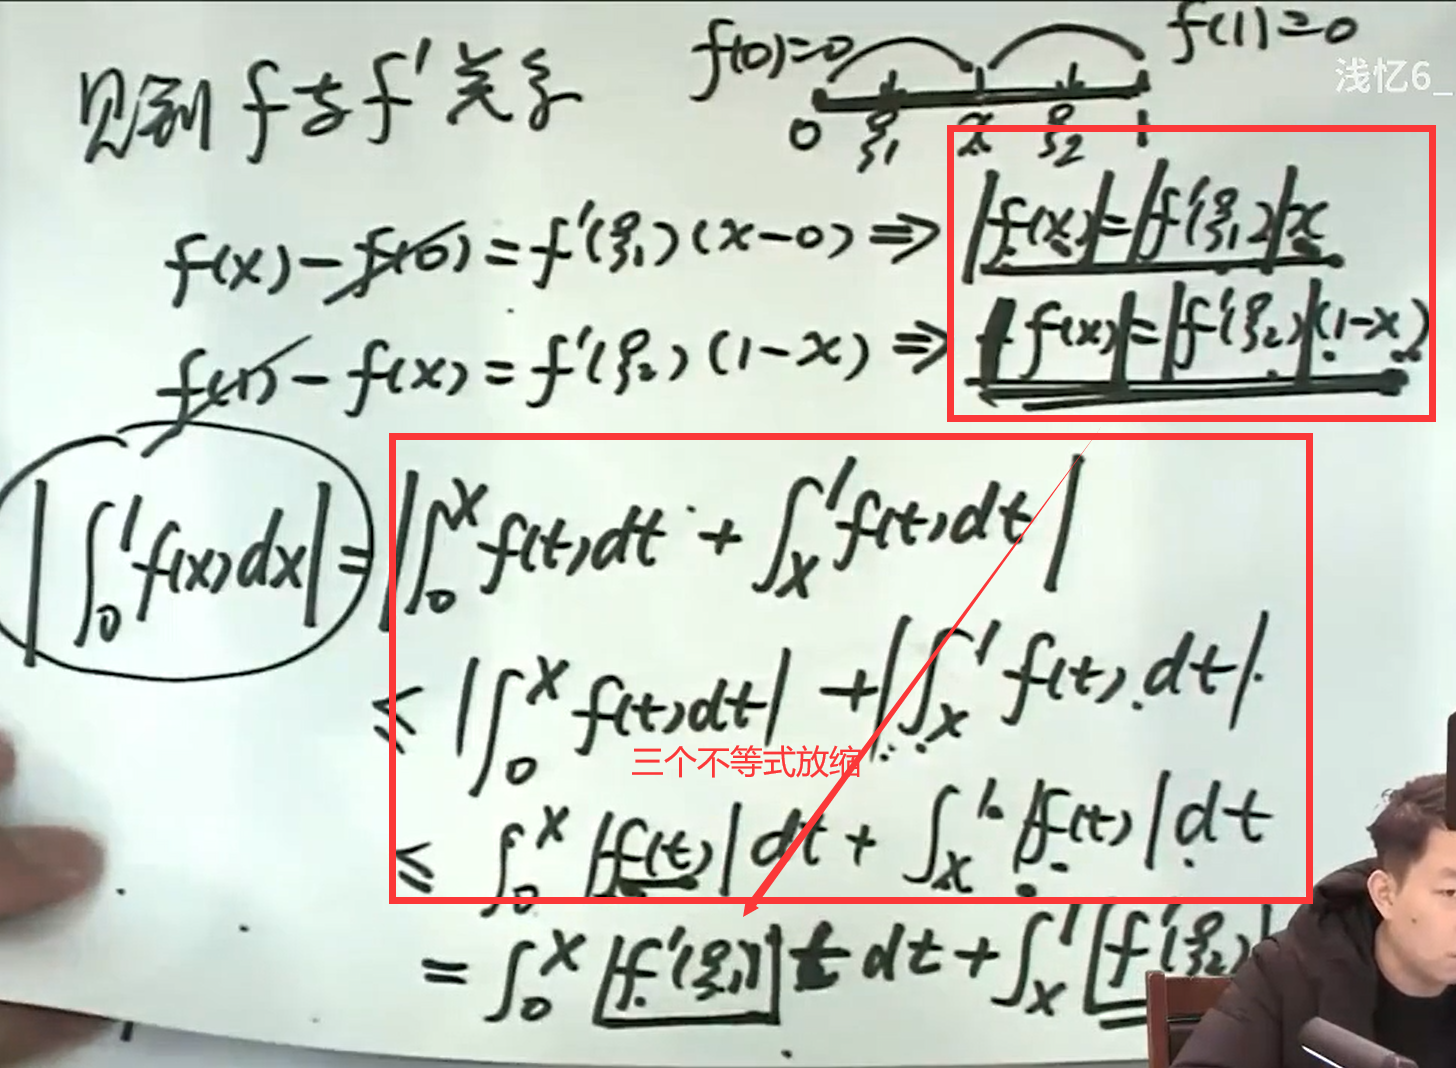 识别 f与f'关系
f(0)=0 f(1)=0
浅忆6_
0 ξ₁ x ξ₂ 1
f(x)-f(0)=f'(ξ₁)(x-0)⇒ |f(x)|=|f'(ξ₁)|x
f(1)-f(x)=f'(ξ₂)(1-x)⇒ |f(x)|=|f'(ξ₂)|(1-x)
|∫₀¹f(x)dx|=|∫₀ˣf(t)dt+∫ₓ¹f(t)dt|
≤|∫₀ˣf(t)dt|+|∫ₓ¹f(t)dt|
三个不等式放缩
≤∫₀ˣ|f(t)|dt+∫ₓ¹|f(t)|dt
=∫₀ˣ|f'(ξ₁)|t dt+∫ₓ¹|f'(ξ₂)|